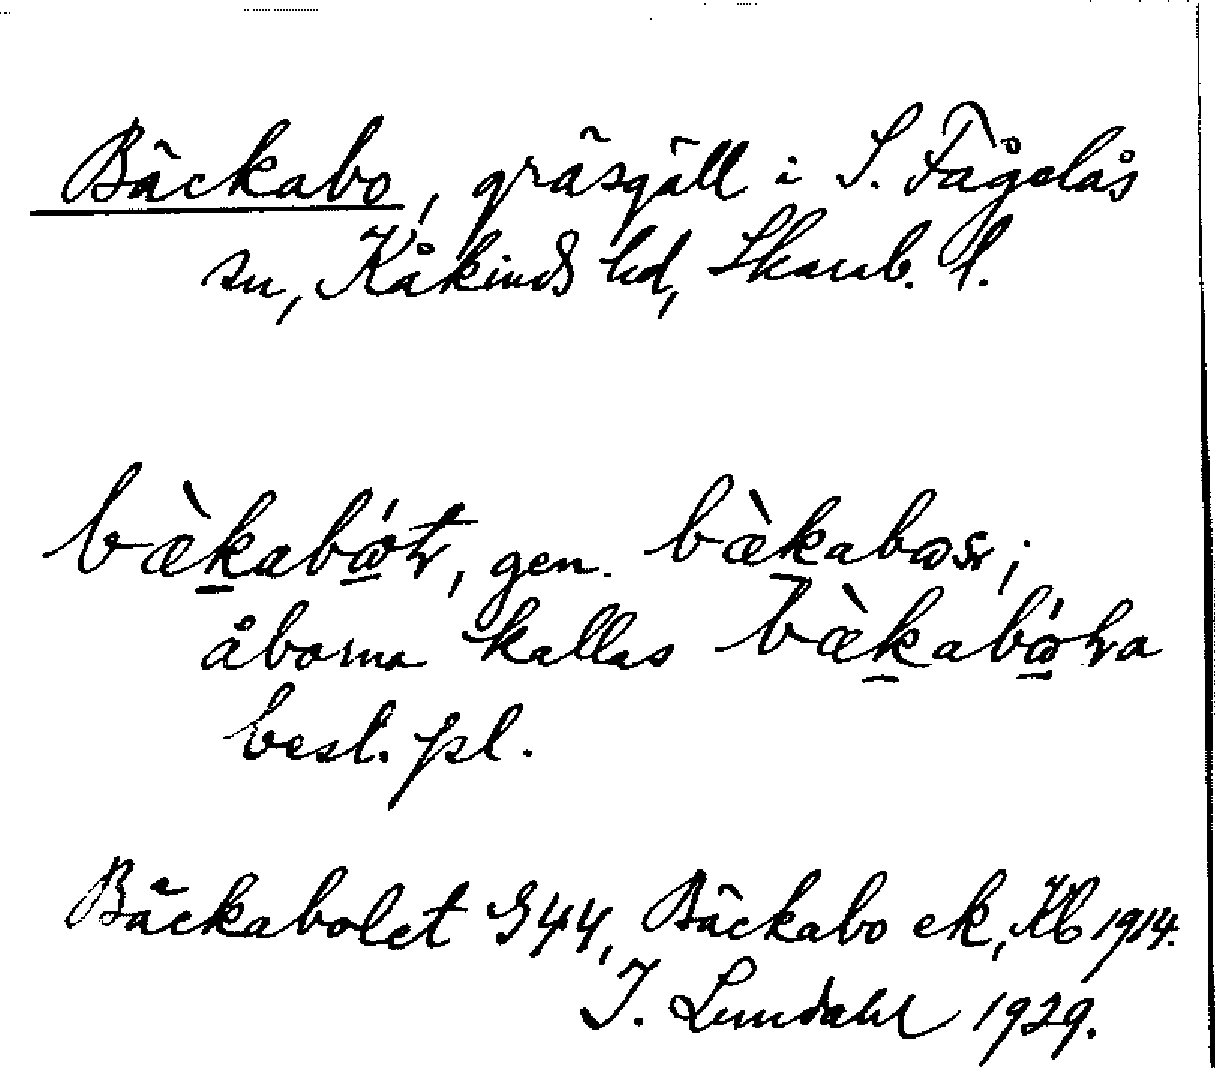 Bäckabo, gräsgäll i S. Fågelås
sn, Kåkinds hd, Skarab. l.
bæ̀kabǿtr, gen. bæ̀kabosr;
åborna kallas bæ̀kabóra
best. pl.
Bäckabolet G44, Bäckabo ek, Kb 1914.
I. Lundahl 1929.